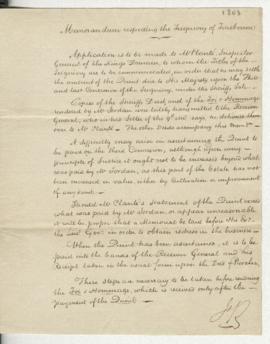 1803
Memorandum regarding the Seigneury of
Application is to be made to Mr Plante, Inspector
General of the Kings Domain, to whom the Titles of the
Seigneury are to be communicated, in order that he may settle
the amount of the Quint due to His Majesty upon the
and last Concession of the Seigneury, under the Sheriffs Sale.
Copies of the Sheriffs Deed, and of the Foi & Hommage
rendered by Mr Jordan were lately transmitted to the Receiver
General, who in his letter of the 9th said, says he delivered them
over to Mr Plante. The other Deeds accompany this
A difficulty may arise in ascertaining the Quint to
be paid on the third Concession, although upon every
principle of Justice it ought not to be increased beyond what
was paid by Mr Jordan, as this part of the Estate has not
been increased in value, either by Cultivation or improvement
of any kind.
Should Mr Plante's Statement of the Quint exceed
what was paid by Mr Jordan, or appear unreasonable
it will be proper that a Memorial be laid before His Ex.
the Lieut Govr in order to obtain redress in the business.
When the Quint has been ascertained, it is to be
paid into the hands of the Receiver General and his
Receipt taken in the usual form upon the Deed of
These steps are necessary to be taken before rendering
the Foi & Hommage, which is received only after the
payment of the Quint.